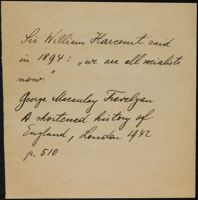 Sir William Harcourt said
in 1894: „we are all socialists
now."
George Macaulay Trevelyan
A shortened history of
England, London 1942
p. 510